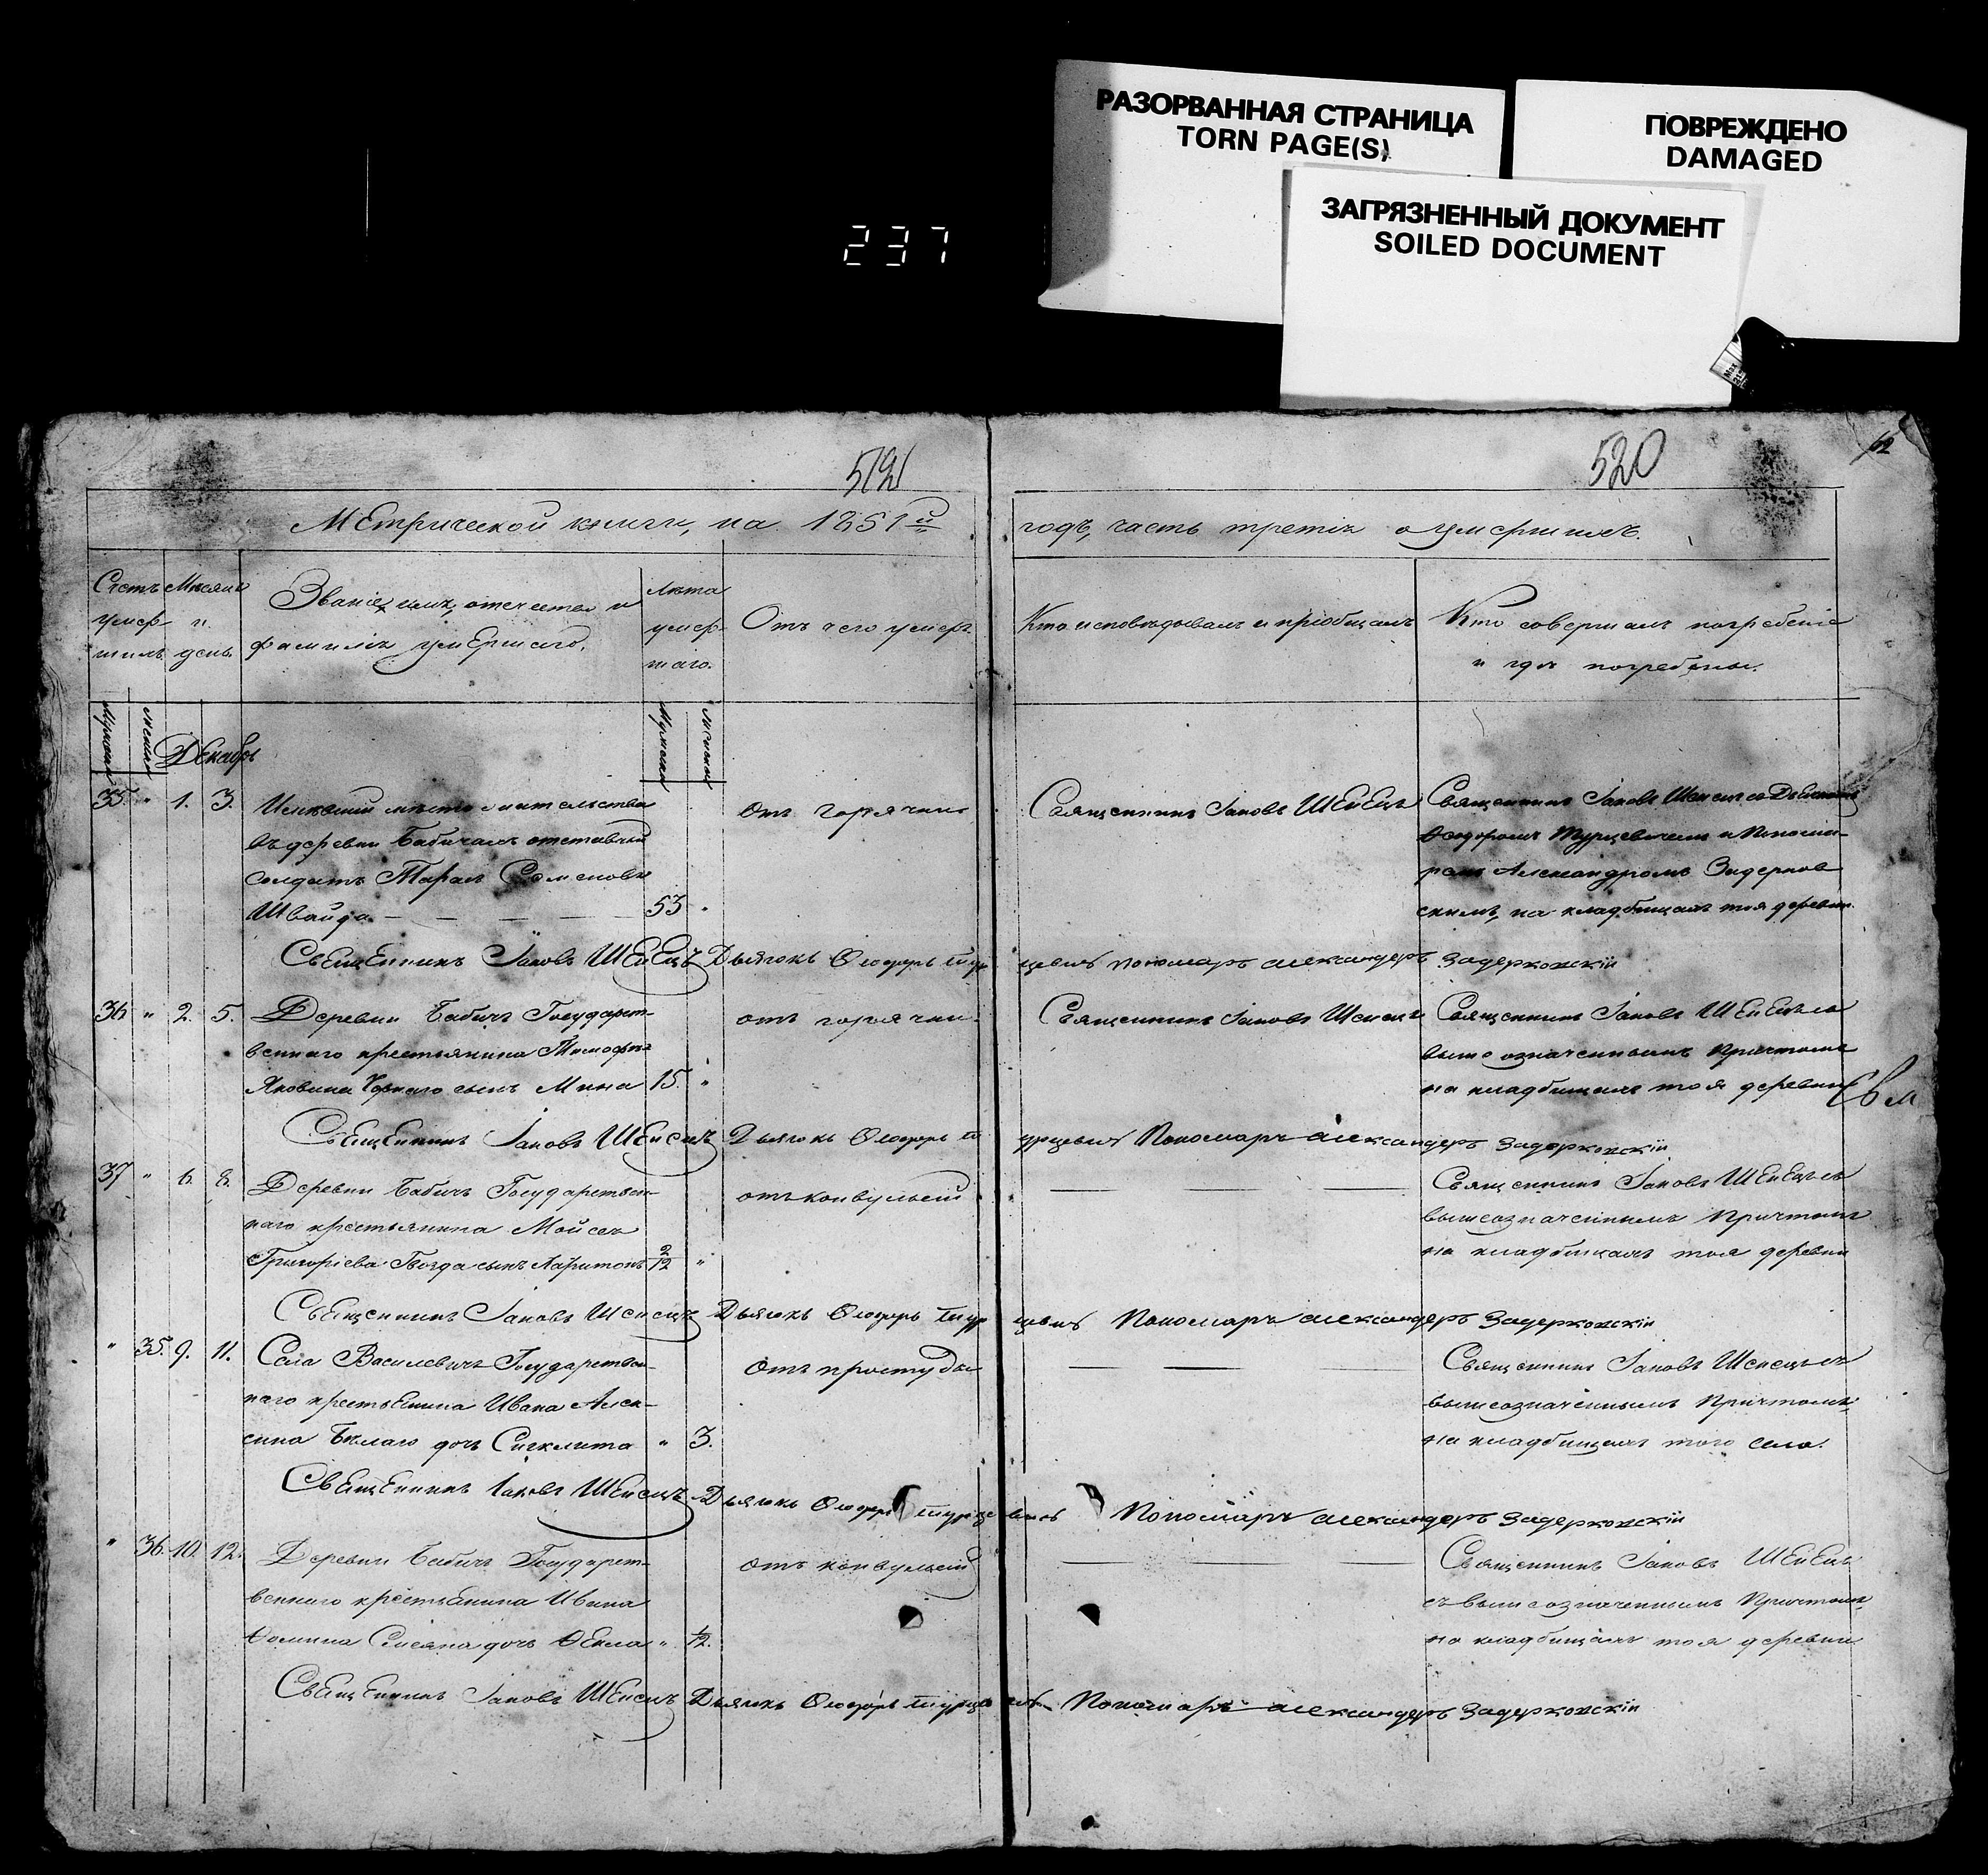 РАЗОРВАННАЯ СТРАНИЦА
TORN PAGE(S)
ПОВРЕЖДЕНО
DAMAGED
ЗАГРЯЗНЕННЫЙ ДОКУМЕНТ
SOILED DOCUMENT
237
520
62
Метрической книги, на 1851й годъ, часть третія о умершихъ.
Счетъ умер-шихъ
Мѣсяцъ и день.
Званіе, имя, отечество и
фамилія умершаго.
Лѣта умер-шаго.
Отъ чего умеръ
Кто исповѣдывалъ и пріобщалъ
Кто совершалъ погребеніе
и гдѣ погребены.
Мужеска
Женска
Декабрь
Мужеска
Женска
35. " 1. 3. Имѣвшій мѣсто жительства
въ деревни Бабичахъ отставный
солдатъ Тарас Семеновъ
Швайда 53 "
отъ горячки
Священникъ Іаковъ Шенецъ
Священникъ Іаковъ Шенецъ съ Дьячкомъ
Феодоромъ Турцевичемъ и Понома-
ремъ Александромъ Задерков
скимъ, на кладбищахъ тоя деревни
Священникъ Іаковъ Шенецъ Дьячокъ Феодоръ Турцевичъ Пономарь Александеръ Задерковскій
36 " 2. 5. Деревни Бабичъ Государст-
веннаго крестьянина Тимофея
Яковина сынъ Мина 15. "
отъ горячки
Священникъ Іаковъ Шенецъ
Священникъ Іаковъ Шенецъ съ
выше означеннымъ причтомъ
на кладбищахъ тоя деревни
Священникъ Іаковъ Шенецъ Дьячокъ Феодоръ Турцевичъ Пономарь Александеръ Задерковскій
37 " 6. 8. Деревни Бабичъ Государствен-
наго крестьянина Мойсея
Григоріева Гвозда сынъ Харитонъ 2/12 "
отъ конвульсій
Священникъ Іаковъ Шенецъ съ
вышеозначеннымъ причтомъ
на кладбищахъ тоя деревни
Священникъ Іаковъ Шенецъ Дьячокъ Феодоръ Турцевичъ Пономарь Александеръ Задерковскій
" 35. 9. 11. Села Василевичъ Государствен-
наго крестьянина Ивана Алек-
сина Бѣлаго дочь Сигклита " 3.
отъ простуды
Священникъ Іаковъ Шенецъ съ
вышеозначеннымъ причтомъ
на кладбищахъ того села.
Священникъ Іаковъ Шенецъ Дьячокъ Феодоръ Турцевичъ Пономарь Александеръ Задерковскій
" 36. 10. 12. Деревни Бабичъ Государст-
веннаго крестьянина Ивана
Фомина дочь Фекла " 1/12.
отъ конвульсій
Священникъ Іаковъ Шенецъ
съ вышеозначеннымъ причтомъ
на кладбищахъ тоя деревни
Священникъ Іаковъ Шенецъ Дьячокъ Феодоръ Турцевичъ Пономарь Александеръ Задерковскій